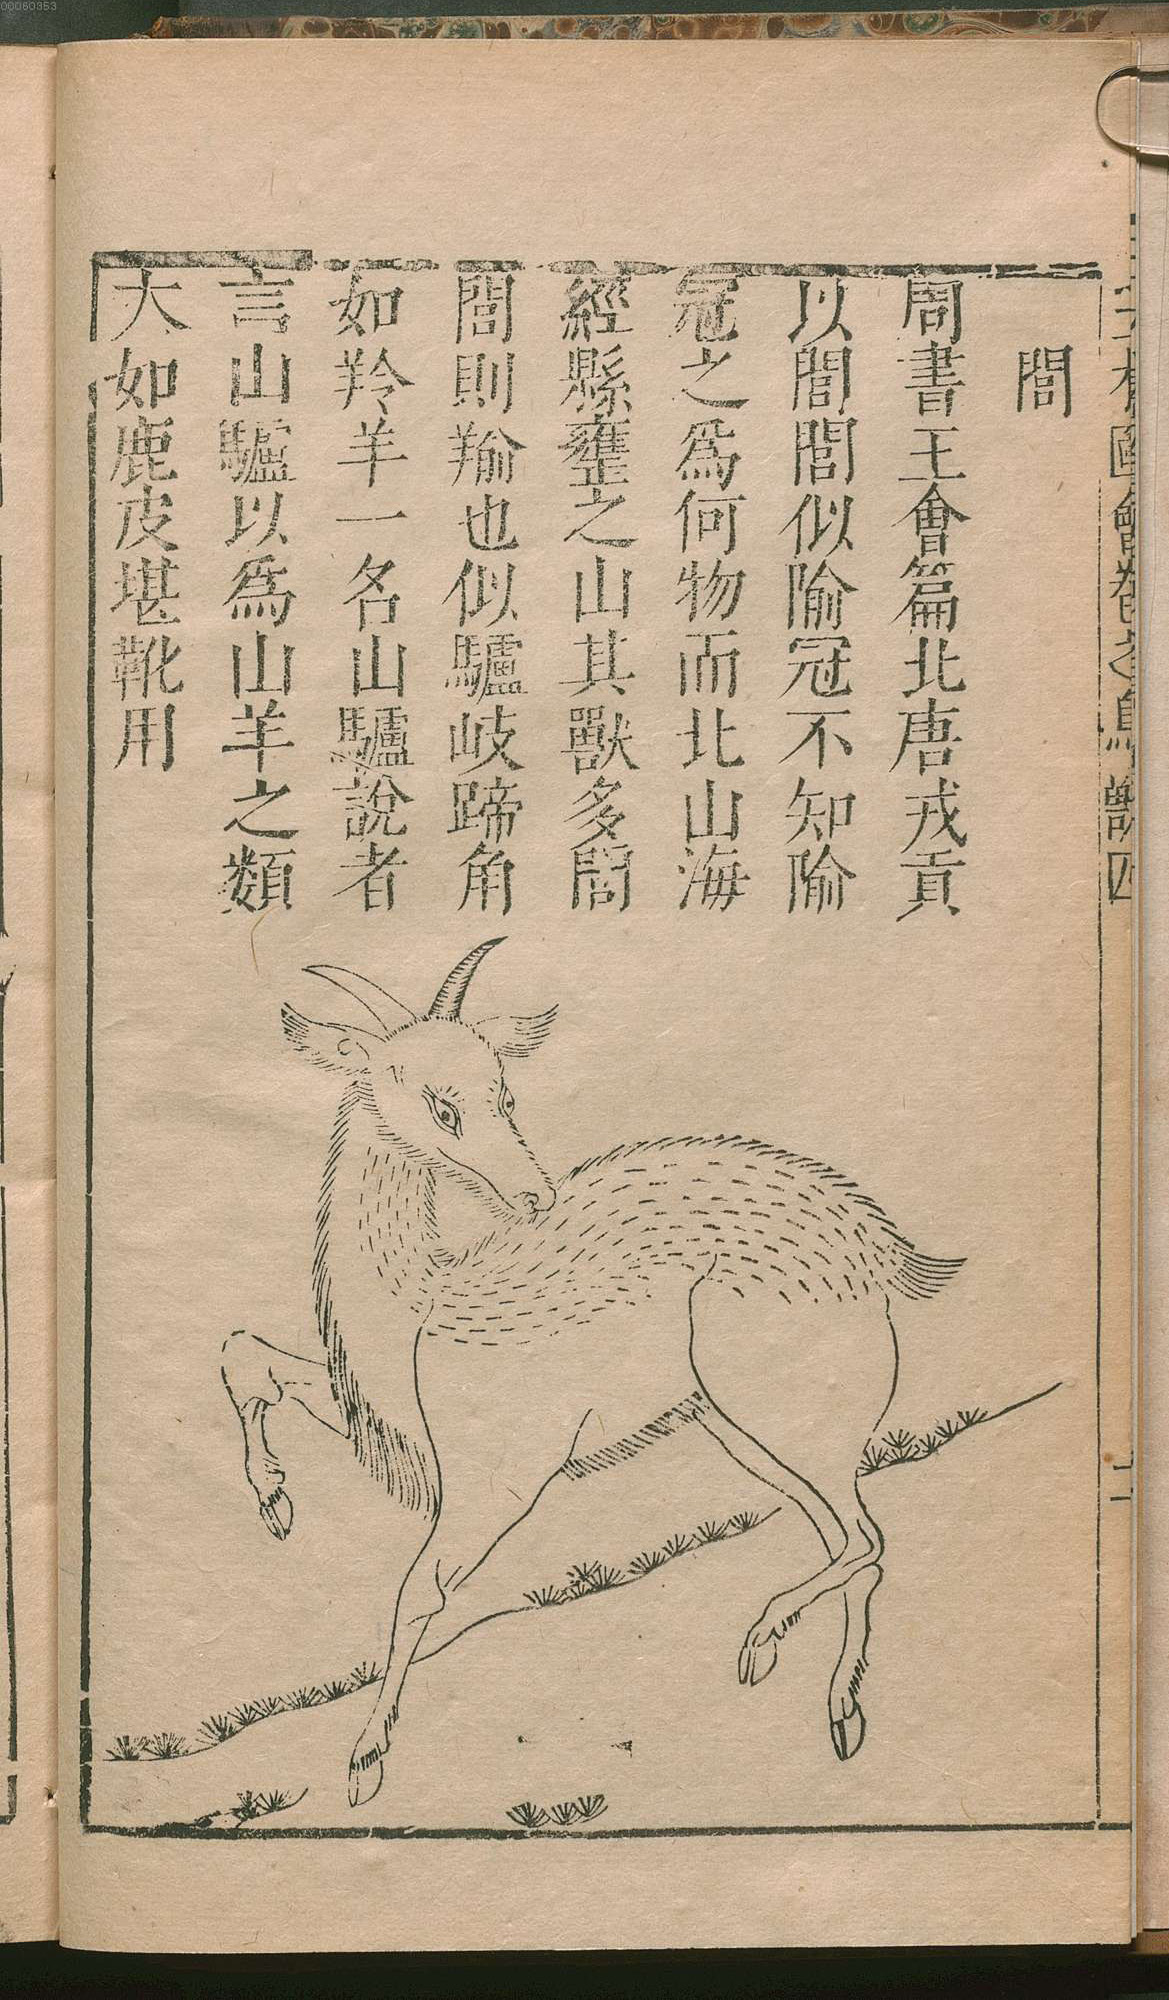 00060353
閭
周書王會篇北唐戎貢
以閭閭似隃冠不知隃
冠之爲何物而北山海
經縣壅之山其獸多閭
閭則羭也似驢岐蹄角
如羚羊一名山驢說者
言山驢以爲山羊之類
大如鹿皮堪靴用